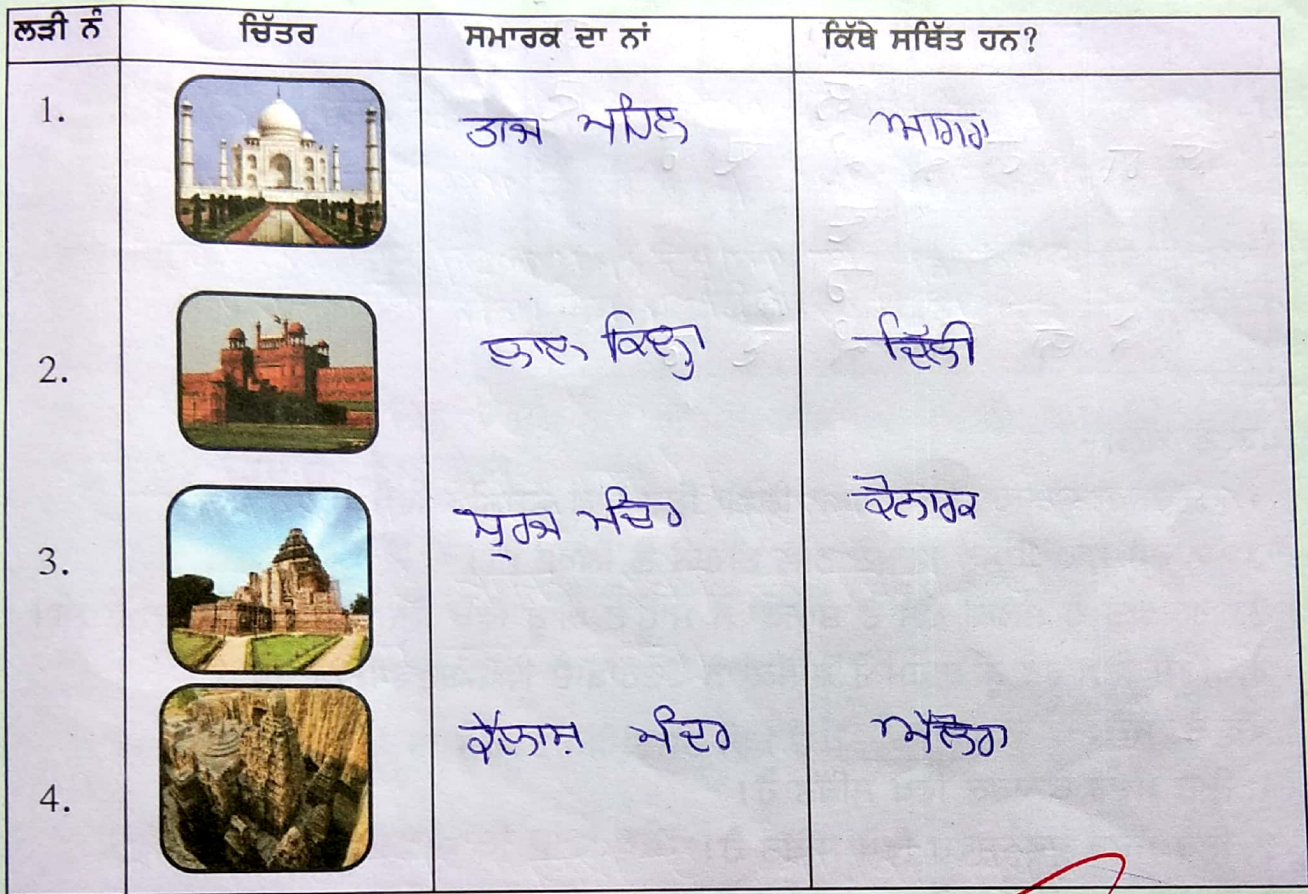 ਲੜੀ ਨੰ ਚਿੱਤਰ ਸਮਾਰਕ ਦਾ ਨਾਂ ਕਿੱਥੇ ਸਥਿੱਤ ਹਨ?
1. ਤਾਜ ਮਹਿਲ ਆਗਰਾ
2. ਲਾਲ ਕਿਲ੍ਹਾ ਦਿੱਲੀ
3. ਸੂਰਜ ਮੰਦਿਰ ਕੋਨਾਰਕ
4. ਕੈਲਾਸ਼ ਮੰਦਰ ਐਲੋਰਾ